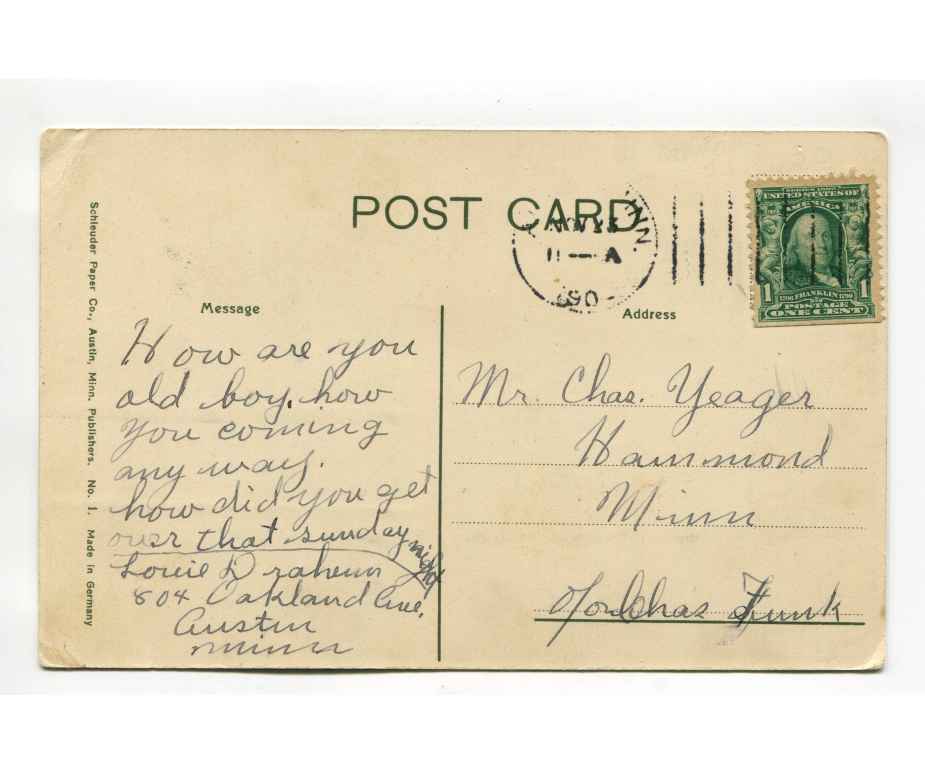 POST CARD
INN.
NOV 23
11 — A
190
UNITED STATES OF
AMERICA
1706 FRANKLIN 1790
POSTAGE
1 ONE CENT 1
Message
Address
How are you
old boy. how
you coming
any way.
how did you get
over that sunday night
Louie Draheim
804 Oakland Ave.
Austin
Minn
Mr. Chas. Yeager
Hammond
Minn
Chas Funk
Schleuder Paper Co., Austin, Minn. Publishers. No. 1. Made in Germany